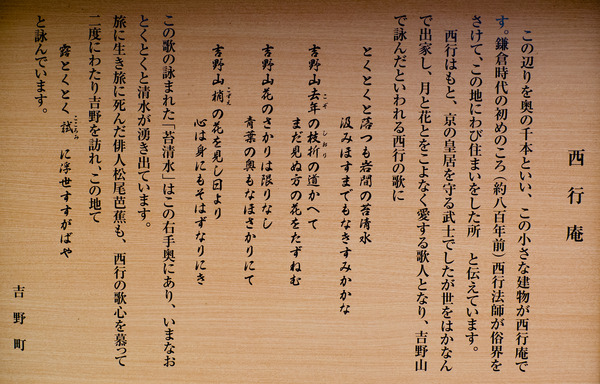 西行庵
この辺りを奥の千本といい、この小さな建物が西行庵で
す。鎌倉時代の初めのころ(約八百年前)西行法師が俗界を
さけて、この地にわび住まいをした所 と伝えています。
西行はもと、京の皇居を守る武士でしたが世をはかなん
で出家し、月と花とをこよなく愛する歌人となり、吉野山
で詠んだといわれる西行の歌に
とくとくと落つる岩間の苔清水
汲みほすまでもなきすみかかな
吉野山去年の枝折の道かへて
まだ見ぬ方の花をたずねむ
吉野山花のさかりは限りなし
青葉の奥もなほさかりにて
吉野山梢の花を見し日より
心は身にもそはずなりにき
この歌の詠まれた「苔清水」はこの右手奥にあり、いまなお
とくとくと清水が湧き出ています。
旅に生き旅に死んだ俳人松尾芭蕉も、西行の歌心を慕って
二度にわたり吉野を訪れ、この地で
露とくとく試に浮世すすがばや
と詠んでいます。
吉野町